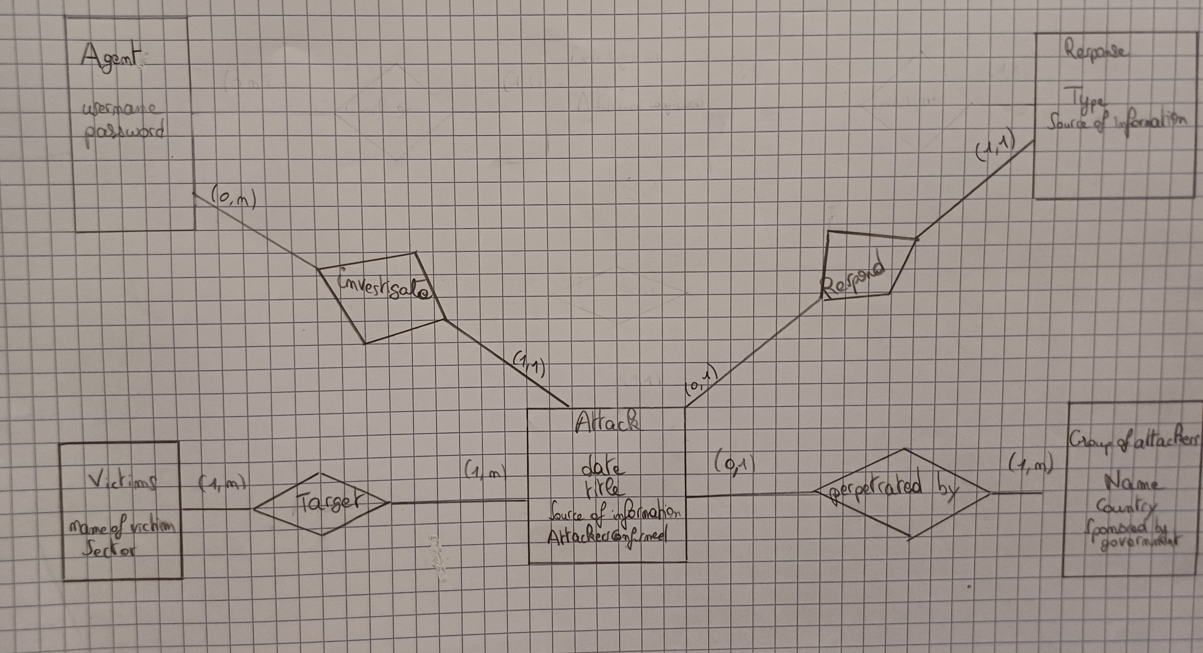 Agent
username
password
Response
Type
Source of information
(1,1)
(0,m)
Investigate
Respond
(1,1)
(0,1)
Attack
date
title
Source of information
Attackersconfirmed
Victims
name of victim
Sector
(1,m)
Target
(1,m)
(0,1)
perpetrated by
(1,m)
Group of attackers
Name
Country
Sponsored by
government